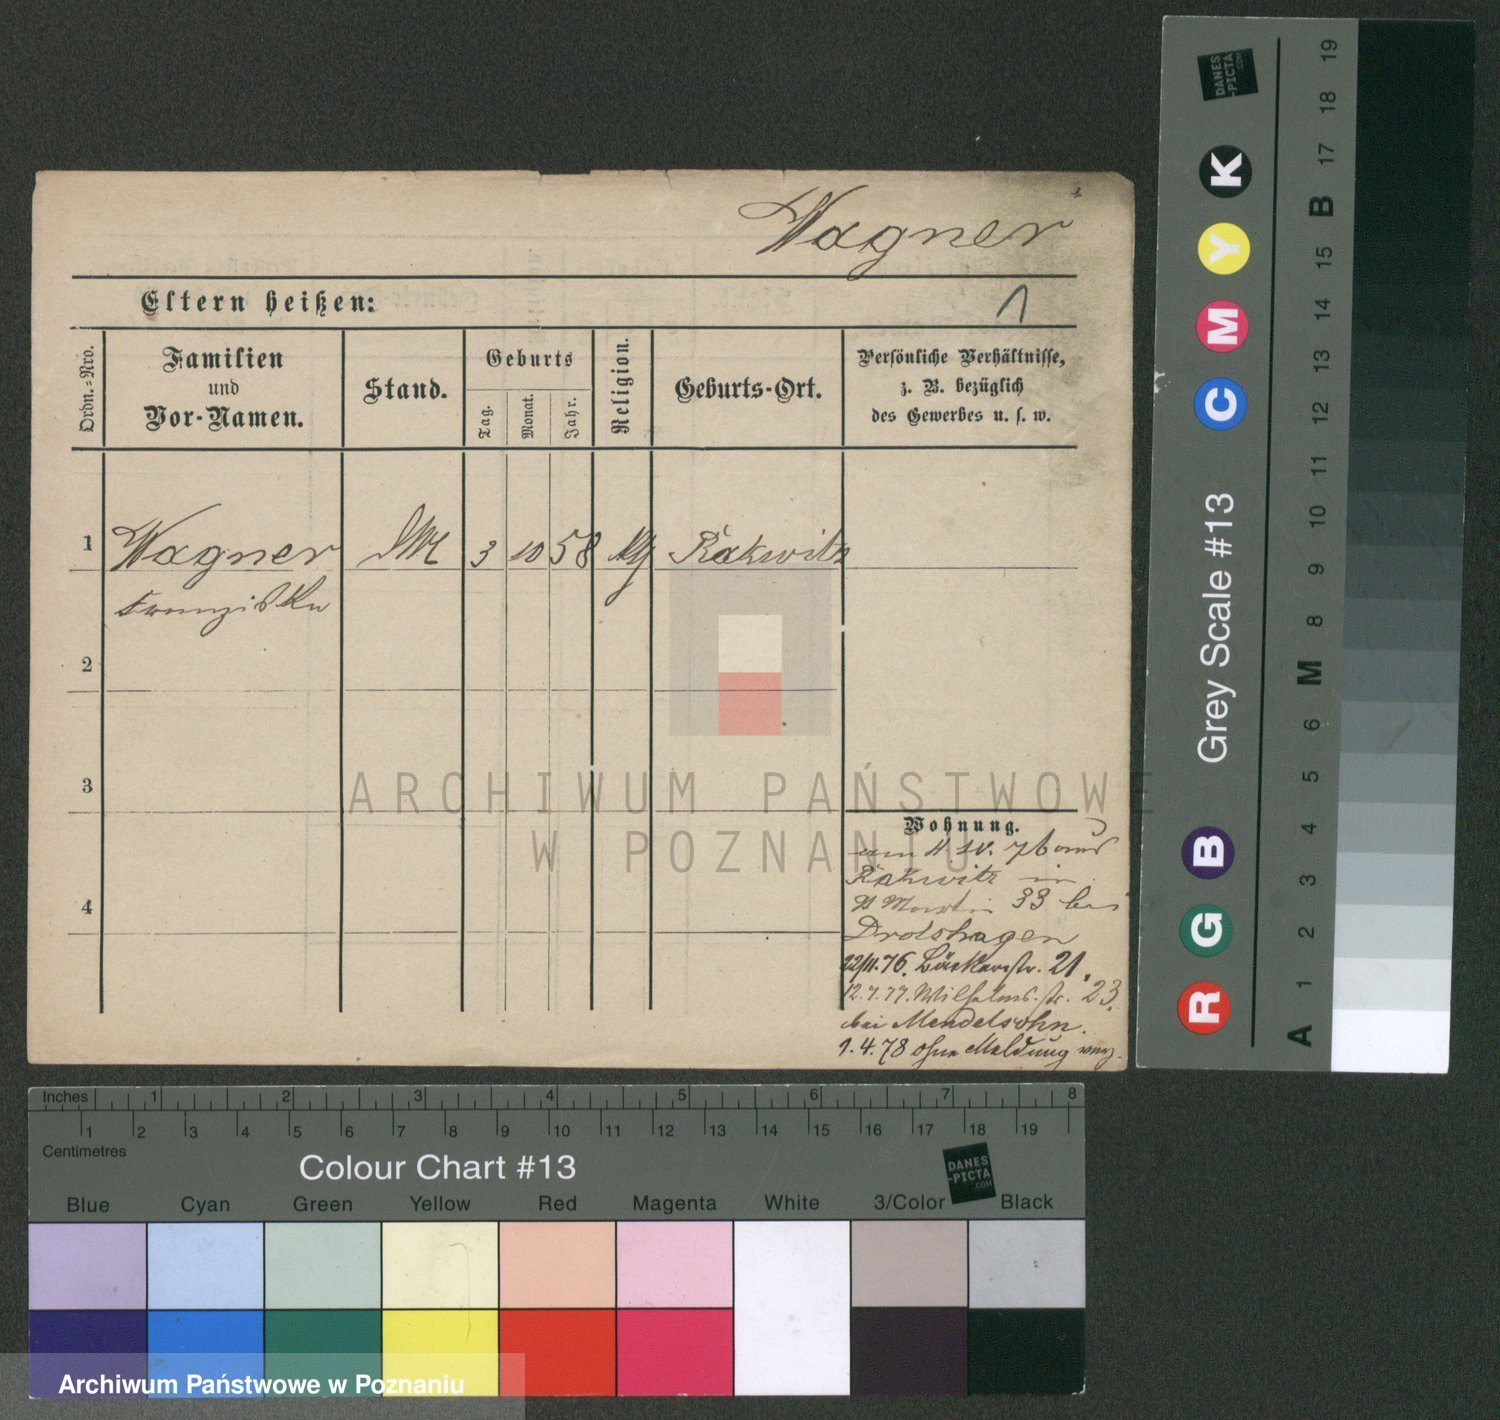 Wagner
Eltern heißen:
1
Ordn.-Nro.
Familien
und
Vor-Namen.
Stand.
Geburts
Tag.
Monat.
Jahr.
Religion.
Geburts-Ort.
Persönliche Verhältnisse,
z. B. bezüglich
des Gewerbes u. s. w.
1
Wagner
3
10
58
Rakwitz
Franziska
2
3
4
Wohnung.
76 aus
Rakwitz in
St Martin 33 bei
Drotshagen
22/11.76. Bäckerstr. 21.
12.7.77. Wilhelms-str. 23.
bei Mendelsohn.
1.4.78 ohne Meldung verz.
ARCHIWUM PAŃSTWOWE
W POZNANIU
Inches 1 2 3 4 5 6 7 8
1 2 3 4 5 6 7 8 9 10 11 12 13 14 15 16 17 18 19
Centimetres
Colour Chart #13
DANES
-PICTA
.COM
Blue Cyan Green Yellow Red Magenta White 3/Color Black
Archiwum Państwowe w Poznaniu
DANES
-PICTA
.COM
R G B Grey Scale #13 C M Y K
A 1 2 3 4 5 6 M 8 9 10 11 12 13 14 15 B 17 18 19